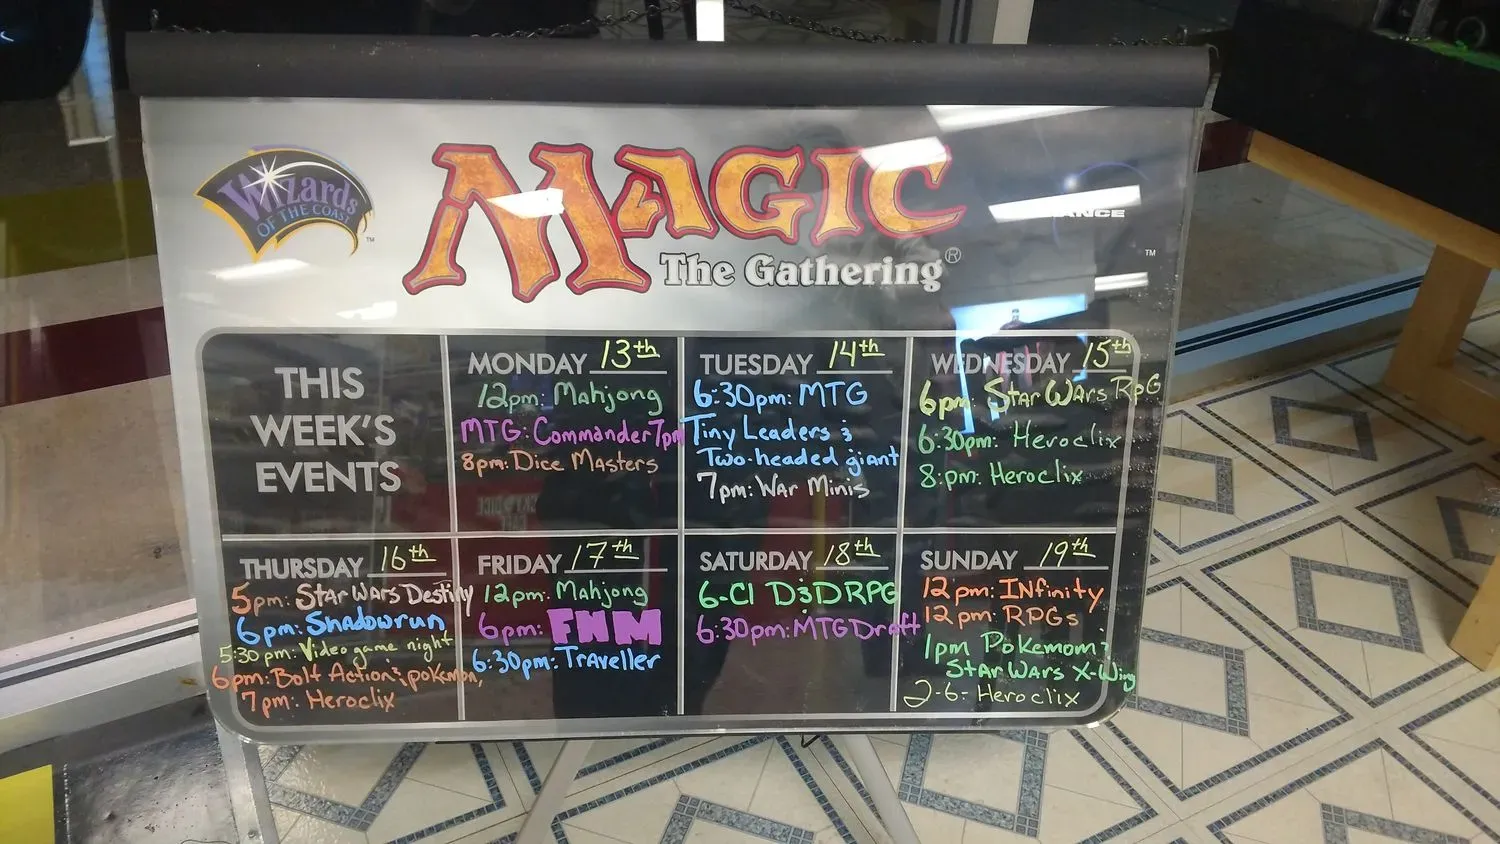 Wizards
OF THE COAST
TM
MAGIC
The Gathering®
ANCE
TM
THIS
WEEK'S
EVENTS
MONDAY 13th
12pm: Mahjong
MTG: Commander 7pm
8pm: Dice Masters
TUESDAY 14th
6:30pm: MTG
Tiny Leaders &
Two-headed giant
7pm: War Minis
WEDNESDAY 15th
6pm: Star Wars RpG
6:30pm: Heroclix
8:pm: Heroclix
THURSDAY 16th
5pm: Star Wars Destiny
6pm: Shadowrun
5:30pm: Video game night
6pm: Bolt Action & pokemon,
7pm: Heroclix
FRIDAY 17th
12pm: Mahjong
6pm: FNM
6:30pm: Traveller
SATURDAY 18th
6-Cl D&D RPG
6:30pm: MTG Draft
SUNDAY 19th
12pm: INfinity
12pm: RPGs
1pm Pokemom &
Star Wars X-Wing
2-6- Heroclix